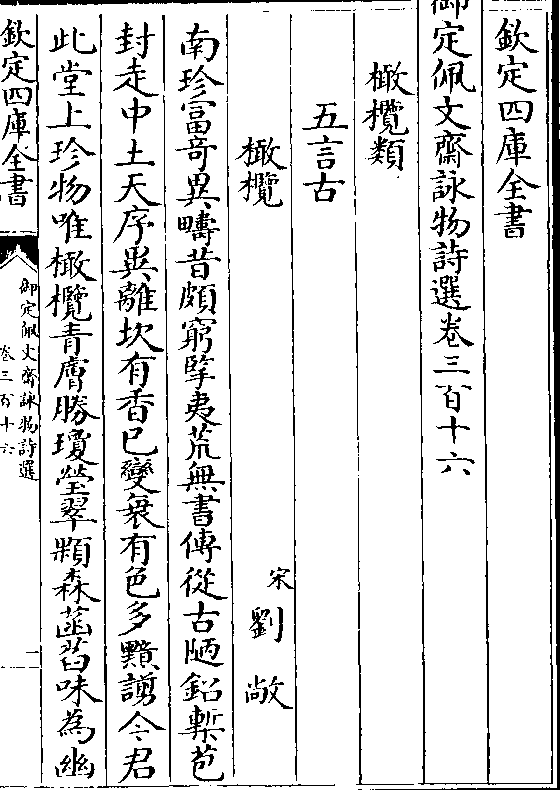 欽定四庫全書
御定佩文齋詠物詩選卷三百十六
橄欖類
五言古
橄欖 宋劉敞
南珍富奇異疇昔頗窮擥夷荒無書傳從古陋鉛槧苞
封走中土天序異離坎有香已變衰有色多今君
此堂上珍物唯橄欖青膚勝瓊瑩翠顆森菡萏味為幽
欽定四庫全書
御定佩文齋詠物詩選
卷三百十六
一